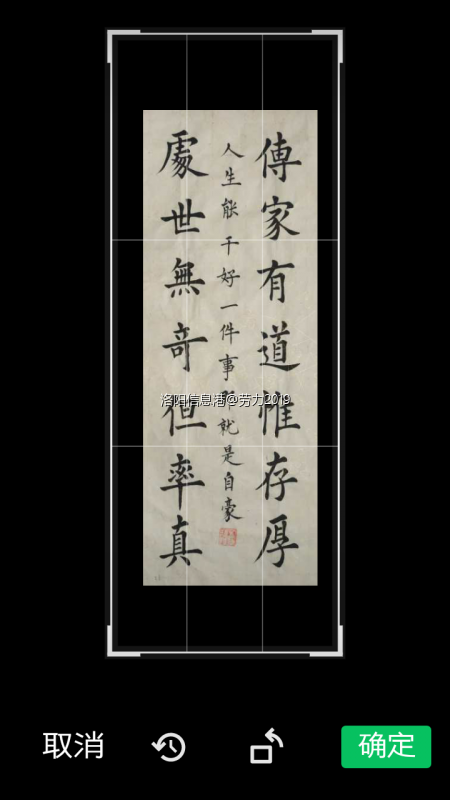 傳家有道惟存厚
人生能干好一件事
就是自豪
處世無奇但率真
洛阳信息港@劳力2019
取消
确定